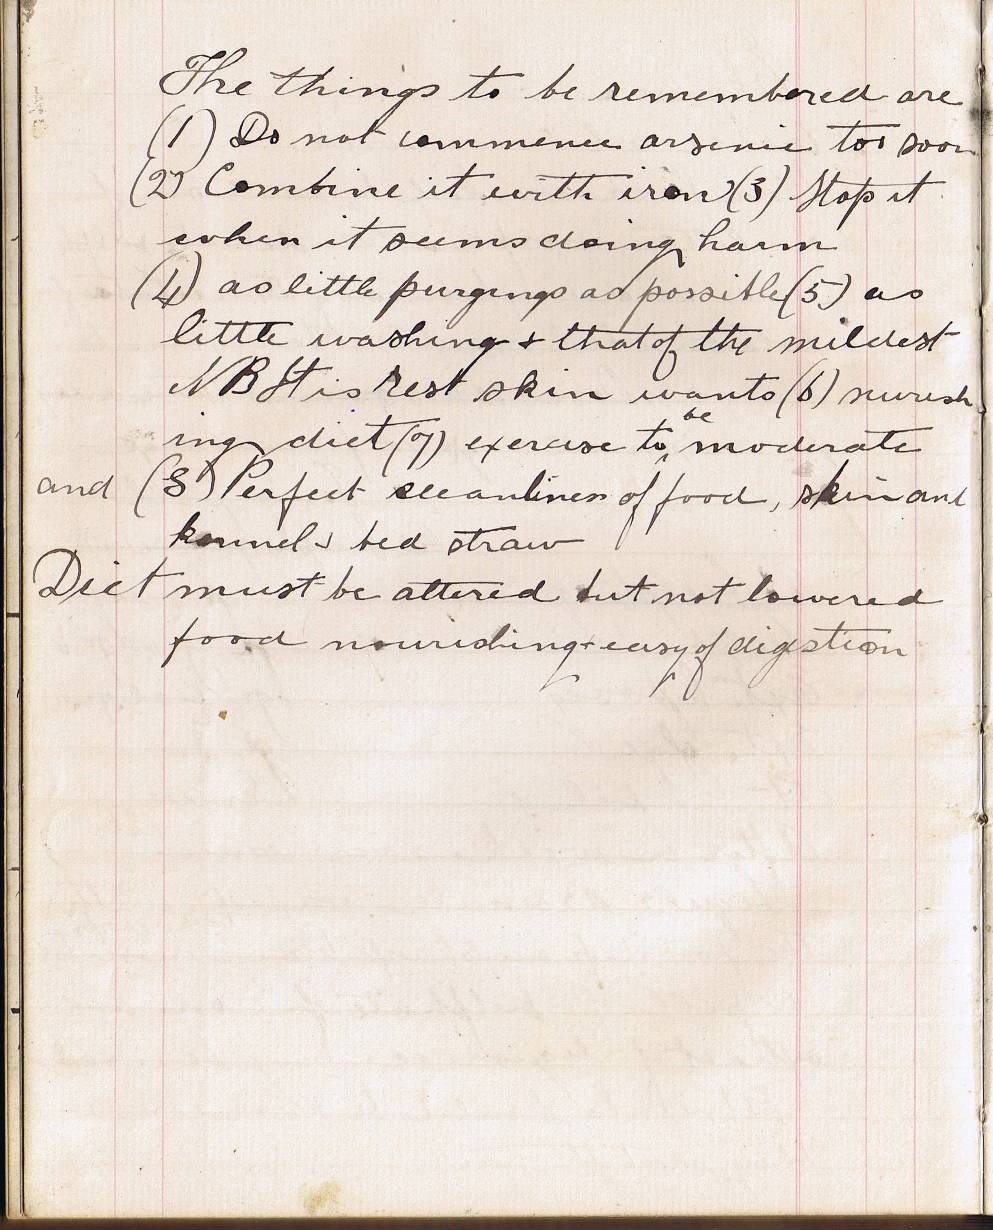 The things to be remembered are
(1) Do not commence arsenic too soon
(2) Combine it with iron (3) Stop it
when it seems doing harm
(4) as little purgings as possible (5) as
little washing & that of the mildest
NB It is rest skin wants (6) nurish
ing diet (7) exercise to be moderate
and (8) Perfect cleanliness of food, skin and
kennel & bed straw
Diet must be altered but not lowered
food nourishing & easy of digestion